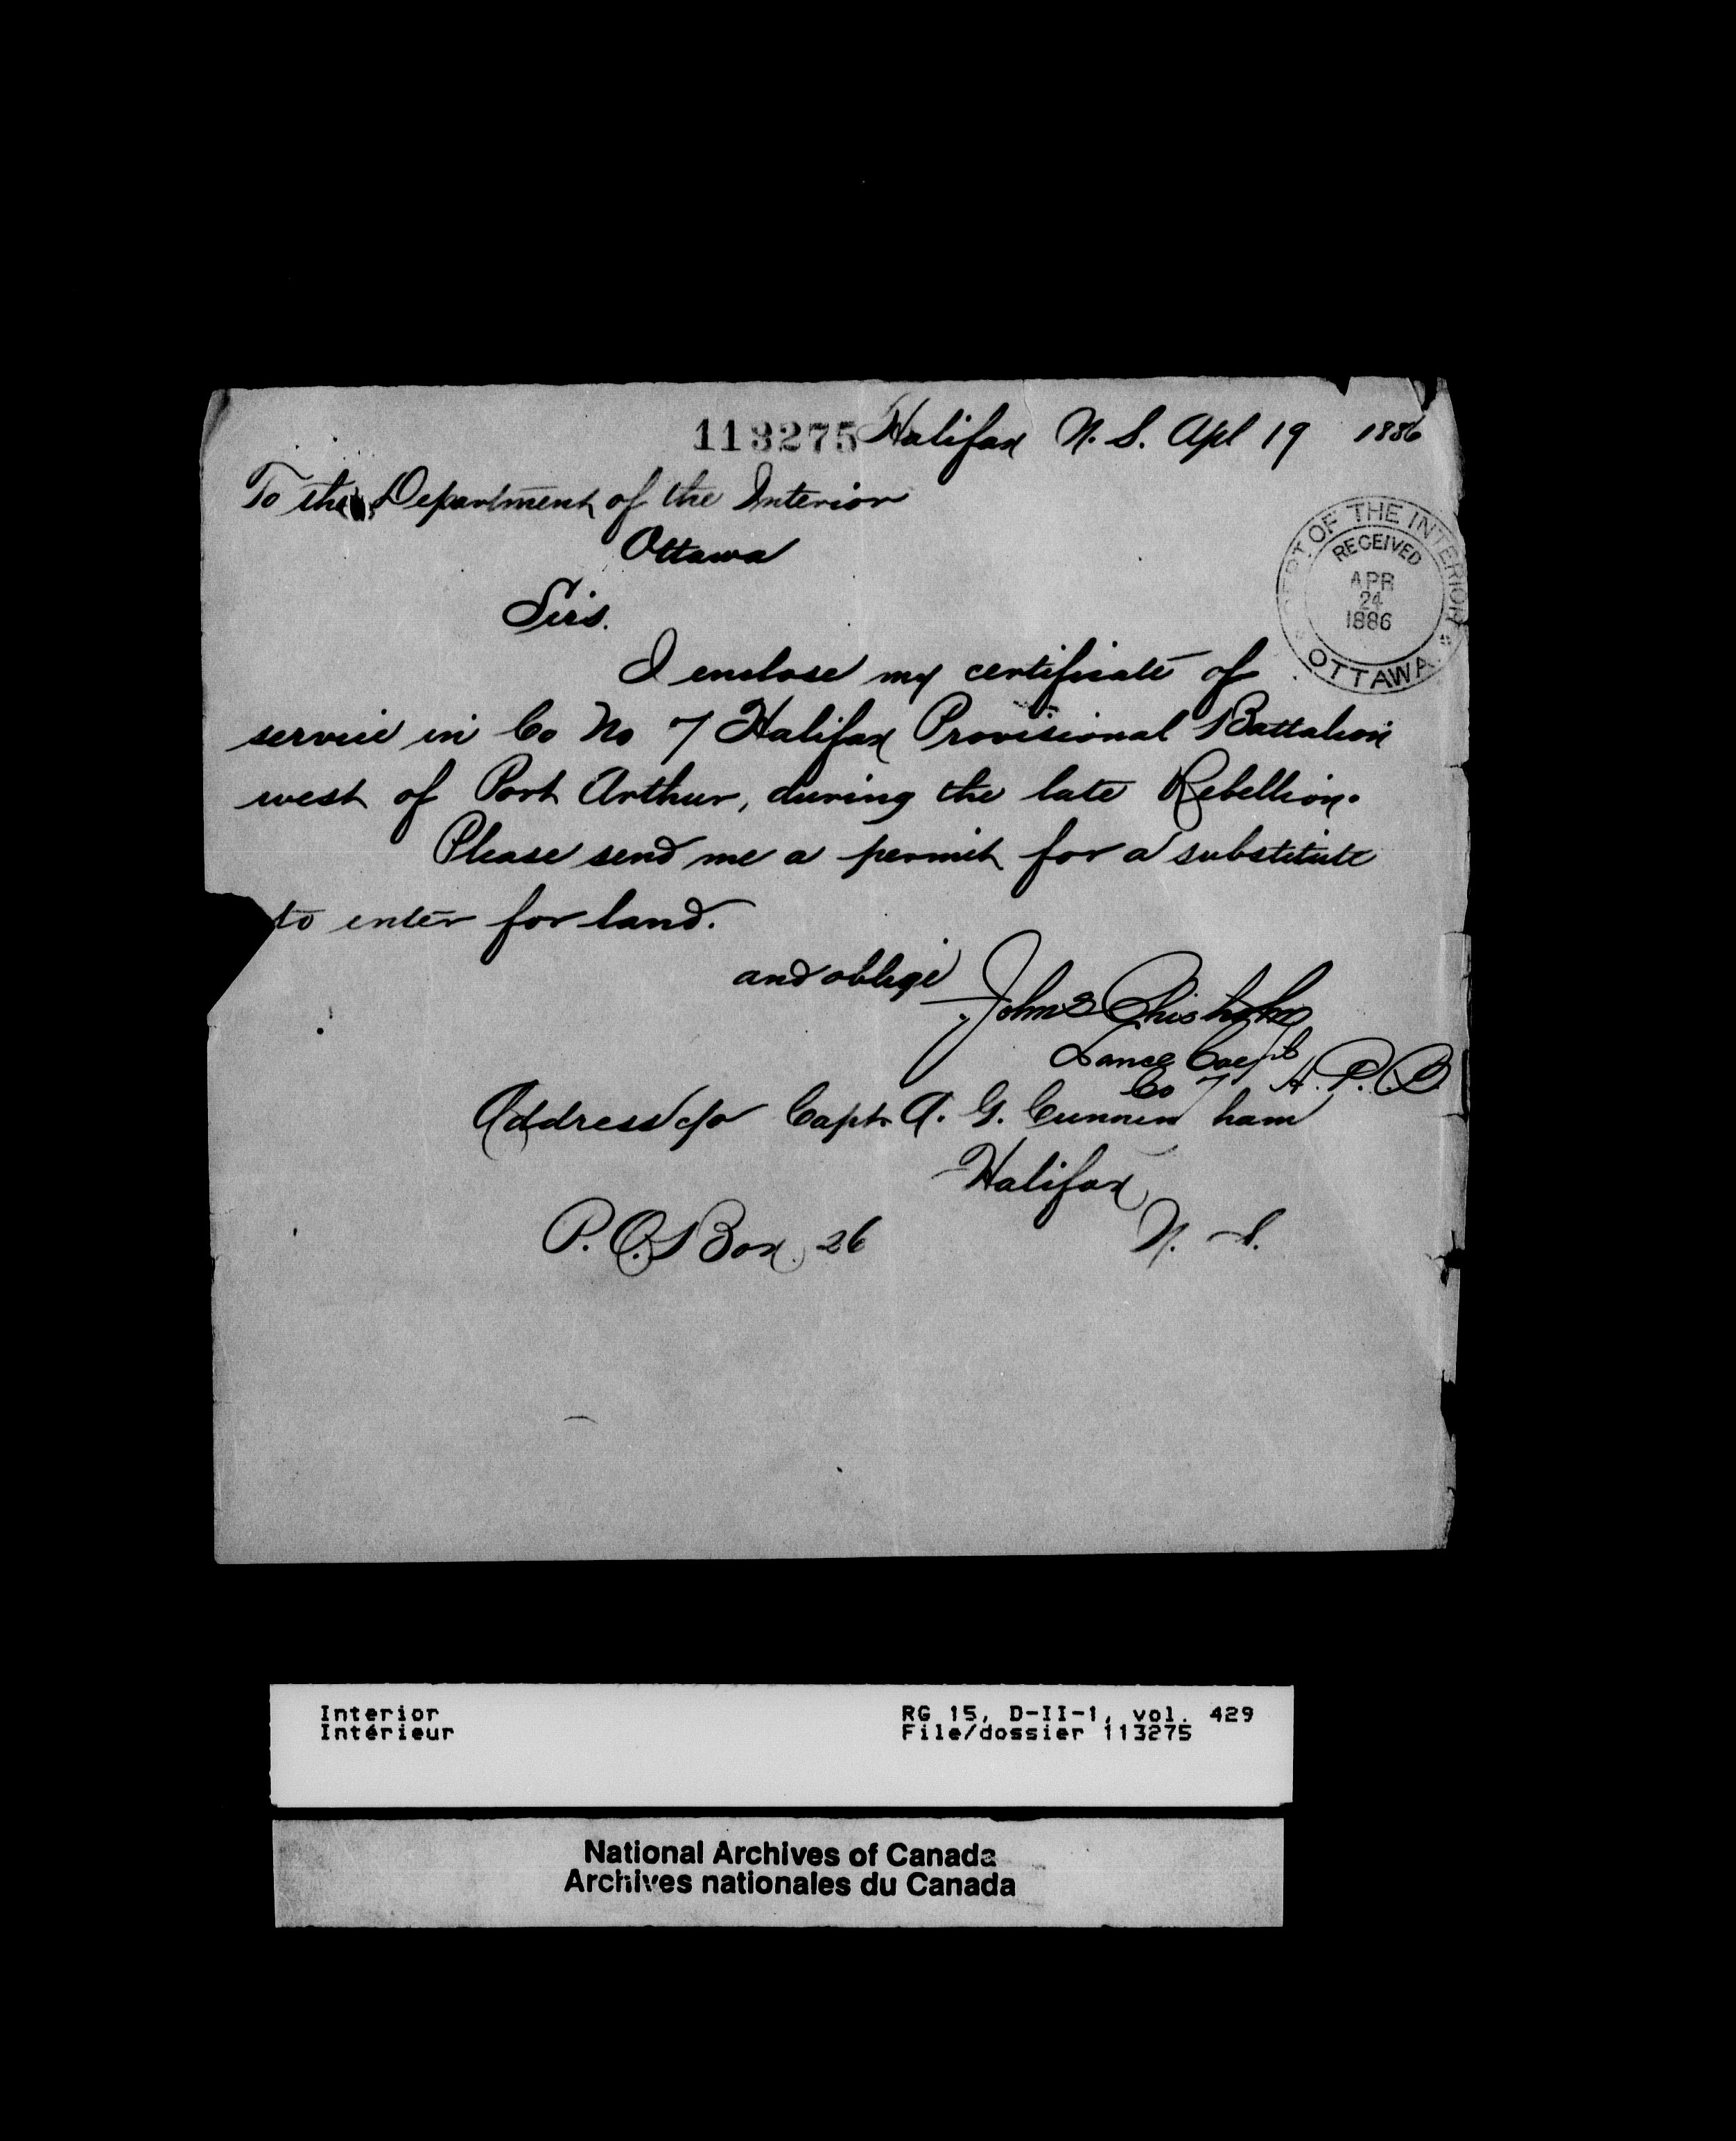 113275 Halifax N. S. Apl 19 1886
To the Department of the Interior
Ottawa
DEPT OF THE INTERIOR
RECEIVED
APR
24
1886
OTTAWA
Sirs.
I enclose my certificate of
service in Co No 7 Halifax Provisional Battalion
west of Port Arthur, during the late Rebellion.
Please send me a permit for a substitute
to enter for land.
and oblige
John S Chisholm
Lance Corpl
Co 7 H. P. B
Address c/o Capt. A. G. Cunnin ham
Halifax
P. O. Box. 26 N. S.
Interior
Intérieur
RG 15, D-II-1, vol. 429
File/dossier 113275
National Archives of Canada
Archives nationales du Canada